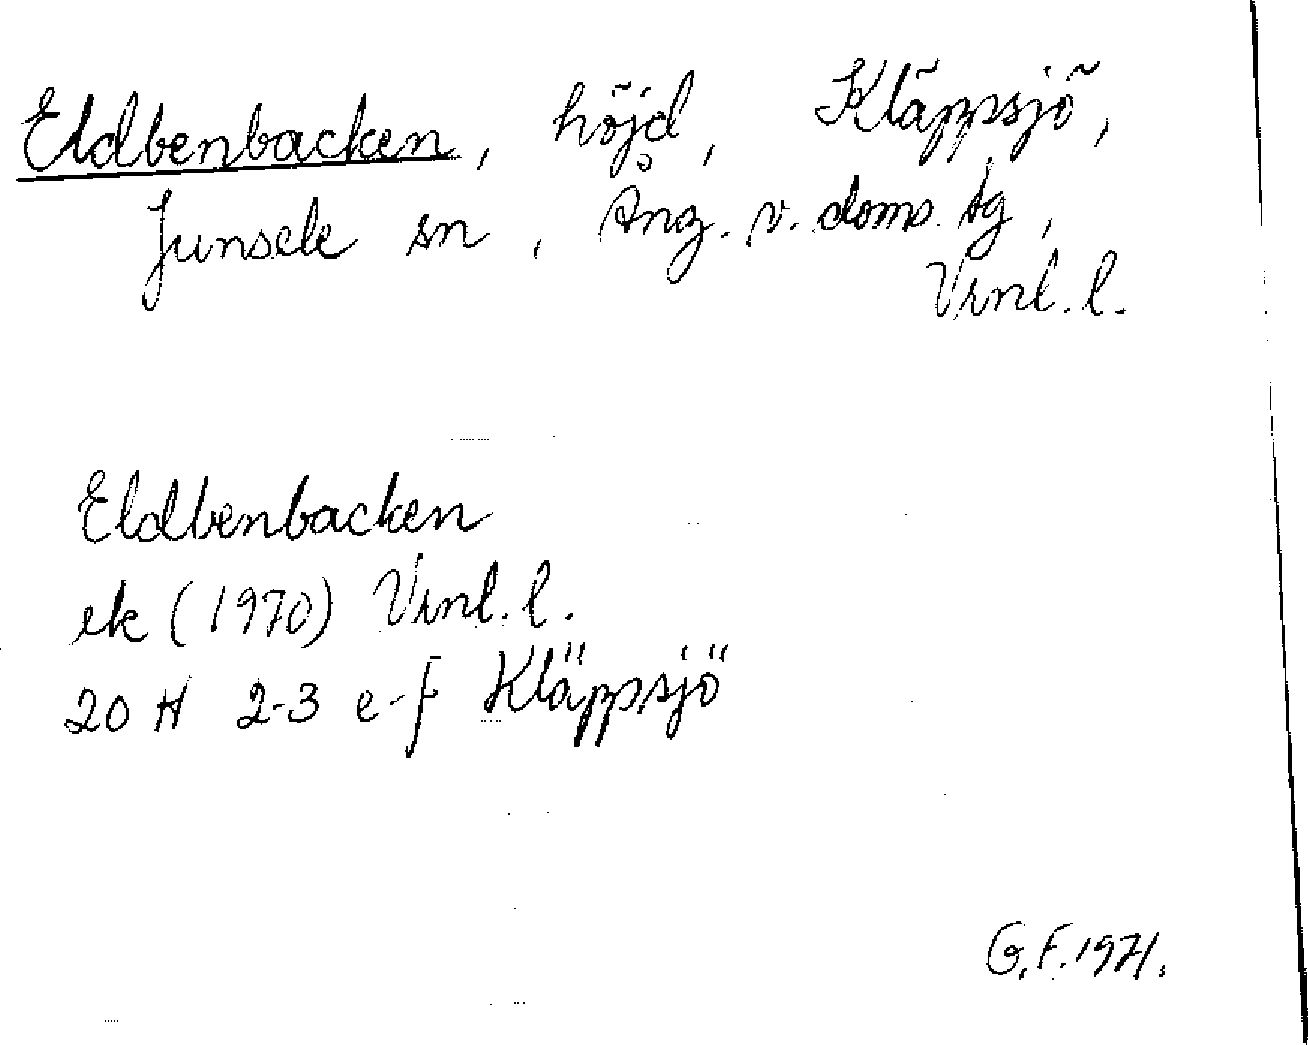 Eldbenbacken, höjd, Kläppsjö,
Junsele sn, Ång. v. doms. tg,
Vrnl. l.
Eldbenbacken
ek (1970) Vrnl. l.
20 H 2-3 e-f Kläppsjö
G.F. 1971.